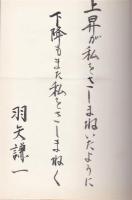 上昇が私をさしまねいたように
下降もまた私をさしまねく
羽矢謙一